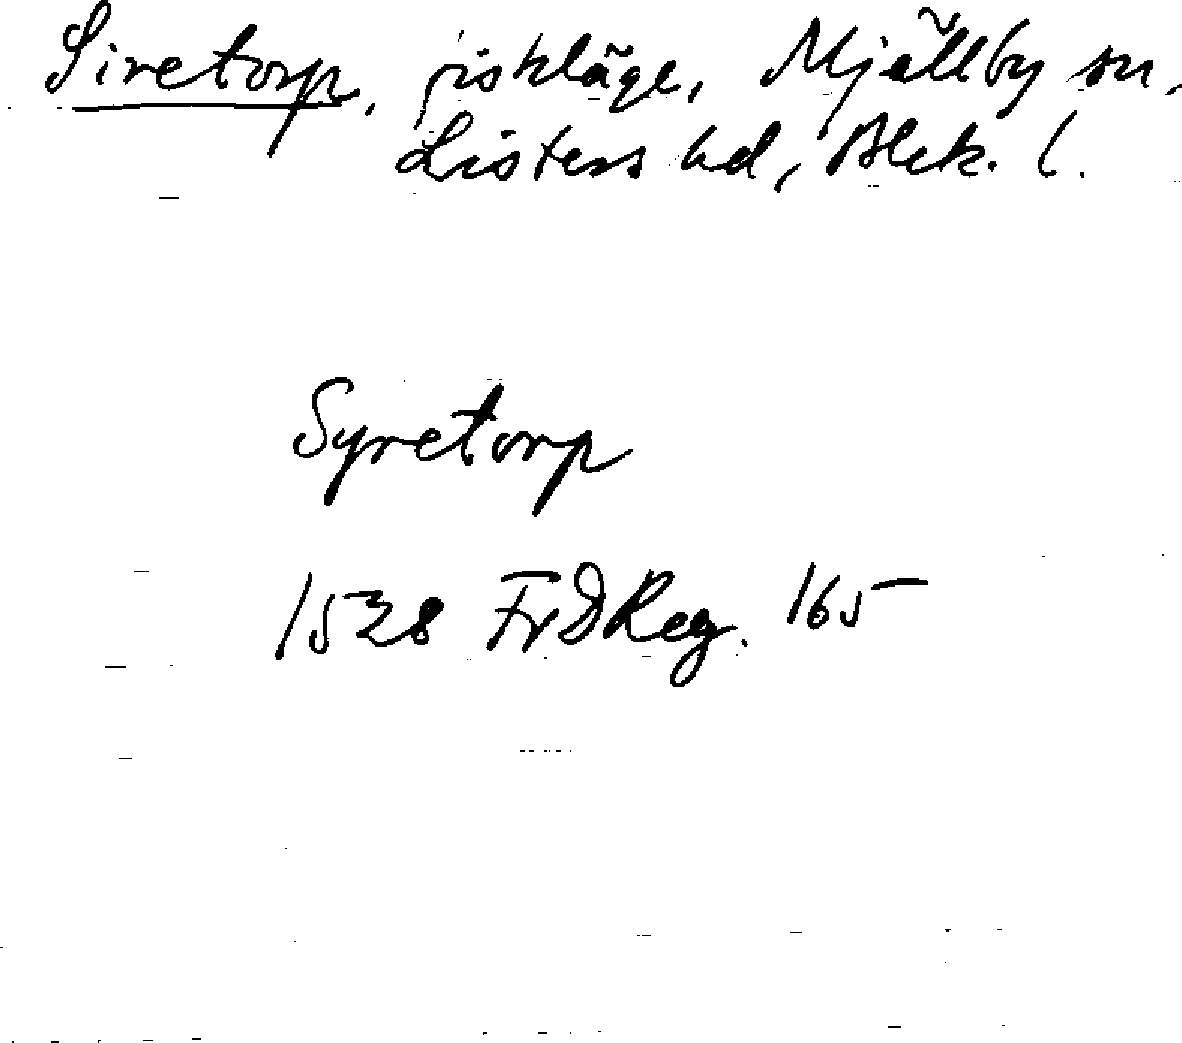 Siretorp, fiskläge, Mjällby sn,
Listers hd, Blek. l.
Syretorp
1528 FrDReg. 165